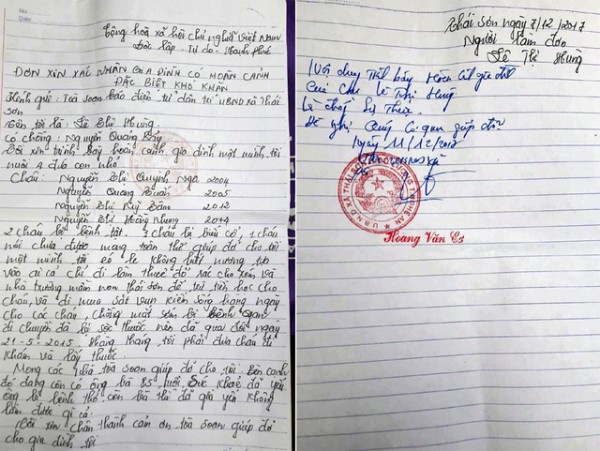 Cộng hòa xã hội chủ nghĩa Việt Nam
Độc lập - Tự do - Hạnh Phúc
ĐƠN XIN XÁC NHẬN GIA ĐÌNH CÓ HOÀN CẢNH
ĐẶC BIỆT KHÓ KHĂN
Kính gửi: Tòa soạn báo điện tử dân trí UBND xã Thái
Sơn
Tên tôi là: Lê Thị Hùng
Có chồng: Nguyễn Quang
Tôi xin trình bày hoàn cảnh gia đình một mình tôi
nuôi 4 đứa con nhỏ
Cháu: Nguyễn Thị Quỳnh Nga 2004
Nguyễn Quang 2005
Nguyễn Thị Huỳ Tâm 2012
Nguyễn Thị Hoàng Nhung 2014
2 cháu bị bệnh tật 1 cháu bị bứu cổ, 1 cháu
nói chưa được mong toàn thể giúp đỡ cho tôi
một mình tôi cô lẻ không biết nương tựa
vào ai cả chỉ đi làm thuê đổ rác cho yên và
nhà trường mần non thái sơn để trừ tiền học cho
cháu, và đi mua sắt vụn kiếm sống hàng ngày
cho các cháu, chồng mất sớm bị bệnh gan
di chuyển đã bị sốc thuốc nên đã qua đời ngày
21-5-2015 Hàng tháng tôi phải đưa cháu đi
khám và lấy thuốc
Mong các nhà tòa soạn giúp đỡ cho tôi. Bên cạnh
đó đang còn có ông bà 85 tuổi sức khỏe đã yếu
ông bị bệnh thở còn bà thì đã già yếu không
làm được gì cả
Tôi xin chân thành cảm ơn tòa soạn giúp đỡ
cho gia đình tôi
Thái Sơn ngày 7/12/2017
Người làm đơn
Lê Thị Hùng
Nội dung trình bày hoàn cảnh gia đình
của chị Lê Thị Hùng
là đúng sự thật.
Đề nghị cùng cơ quan giúp đỡ
Ngày 11/12/2017
U.B.N.D XÃ THÁI SƠN
Hoàng Văn Cơ